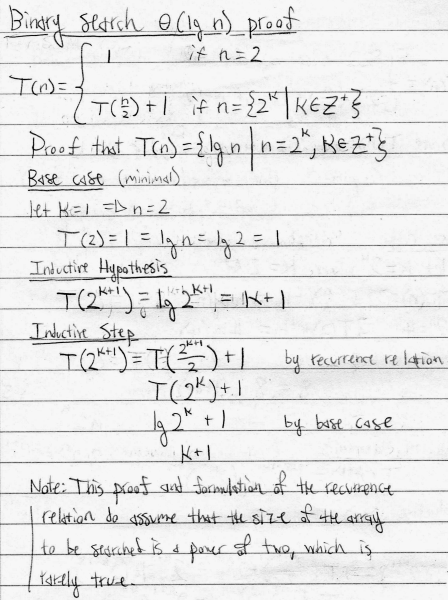 Binary Search Θ(lg n) proof
T(n) = { 1 if n = 2
T(n/2) + 1 if n = {2^k | k ∈ Z^+}
Proof that T(n) = {lg n | n = 2^k, k ∈ Z^+}
Base case (minimal)
let k=1 => n=2
T(2) = 1 = lg n = lg 2 = 1
Inductive Hypothesis
T(2^{k+1}) = lg 2^{k+1} = k+1
Inductive Step
T(2^{k+1}) = T(2^{k+1}/2) + 1 by recurrence relation
T(2^k) + 1
lg 2^k + 1 by base case
k+1
Note: This proof and formulation of the recurrence
relation do assume that the size of the array
to be searched is a power of two, which is
rarely true.